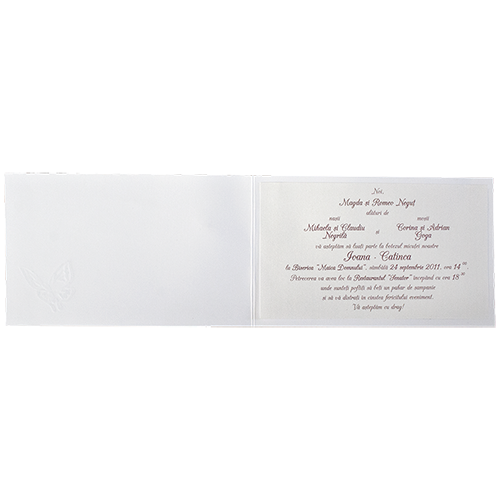 Noi,
Magda și Romeo Neguț
alături de
nașii nașii
Mihaela și Claudiu Corina și Adrian
Negrilă și Goga
vă așteptăm să luați parte la botezul micuței noastre
Ioana - Catinca
la Biserica "Maica Domnului", sâmbătă 24 septembrie 2011, ora 14 00
Petrecerea va avea loc la Restaurantul "Senator" începând cu ora 18 30
unde sunteți poftiți să beți un pahar de șampanie
și să vă distrați în cinstea fericitului eveniment.
Vă așteptăm cu drag!